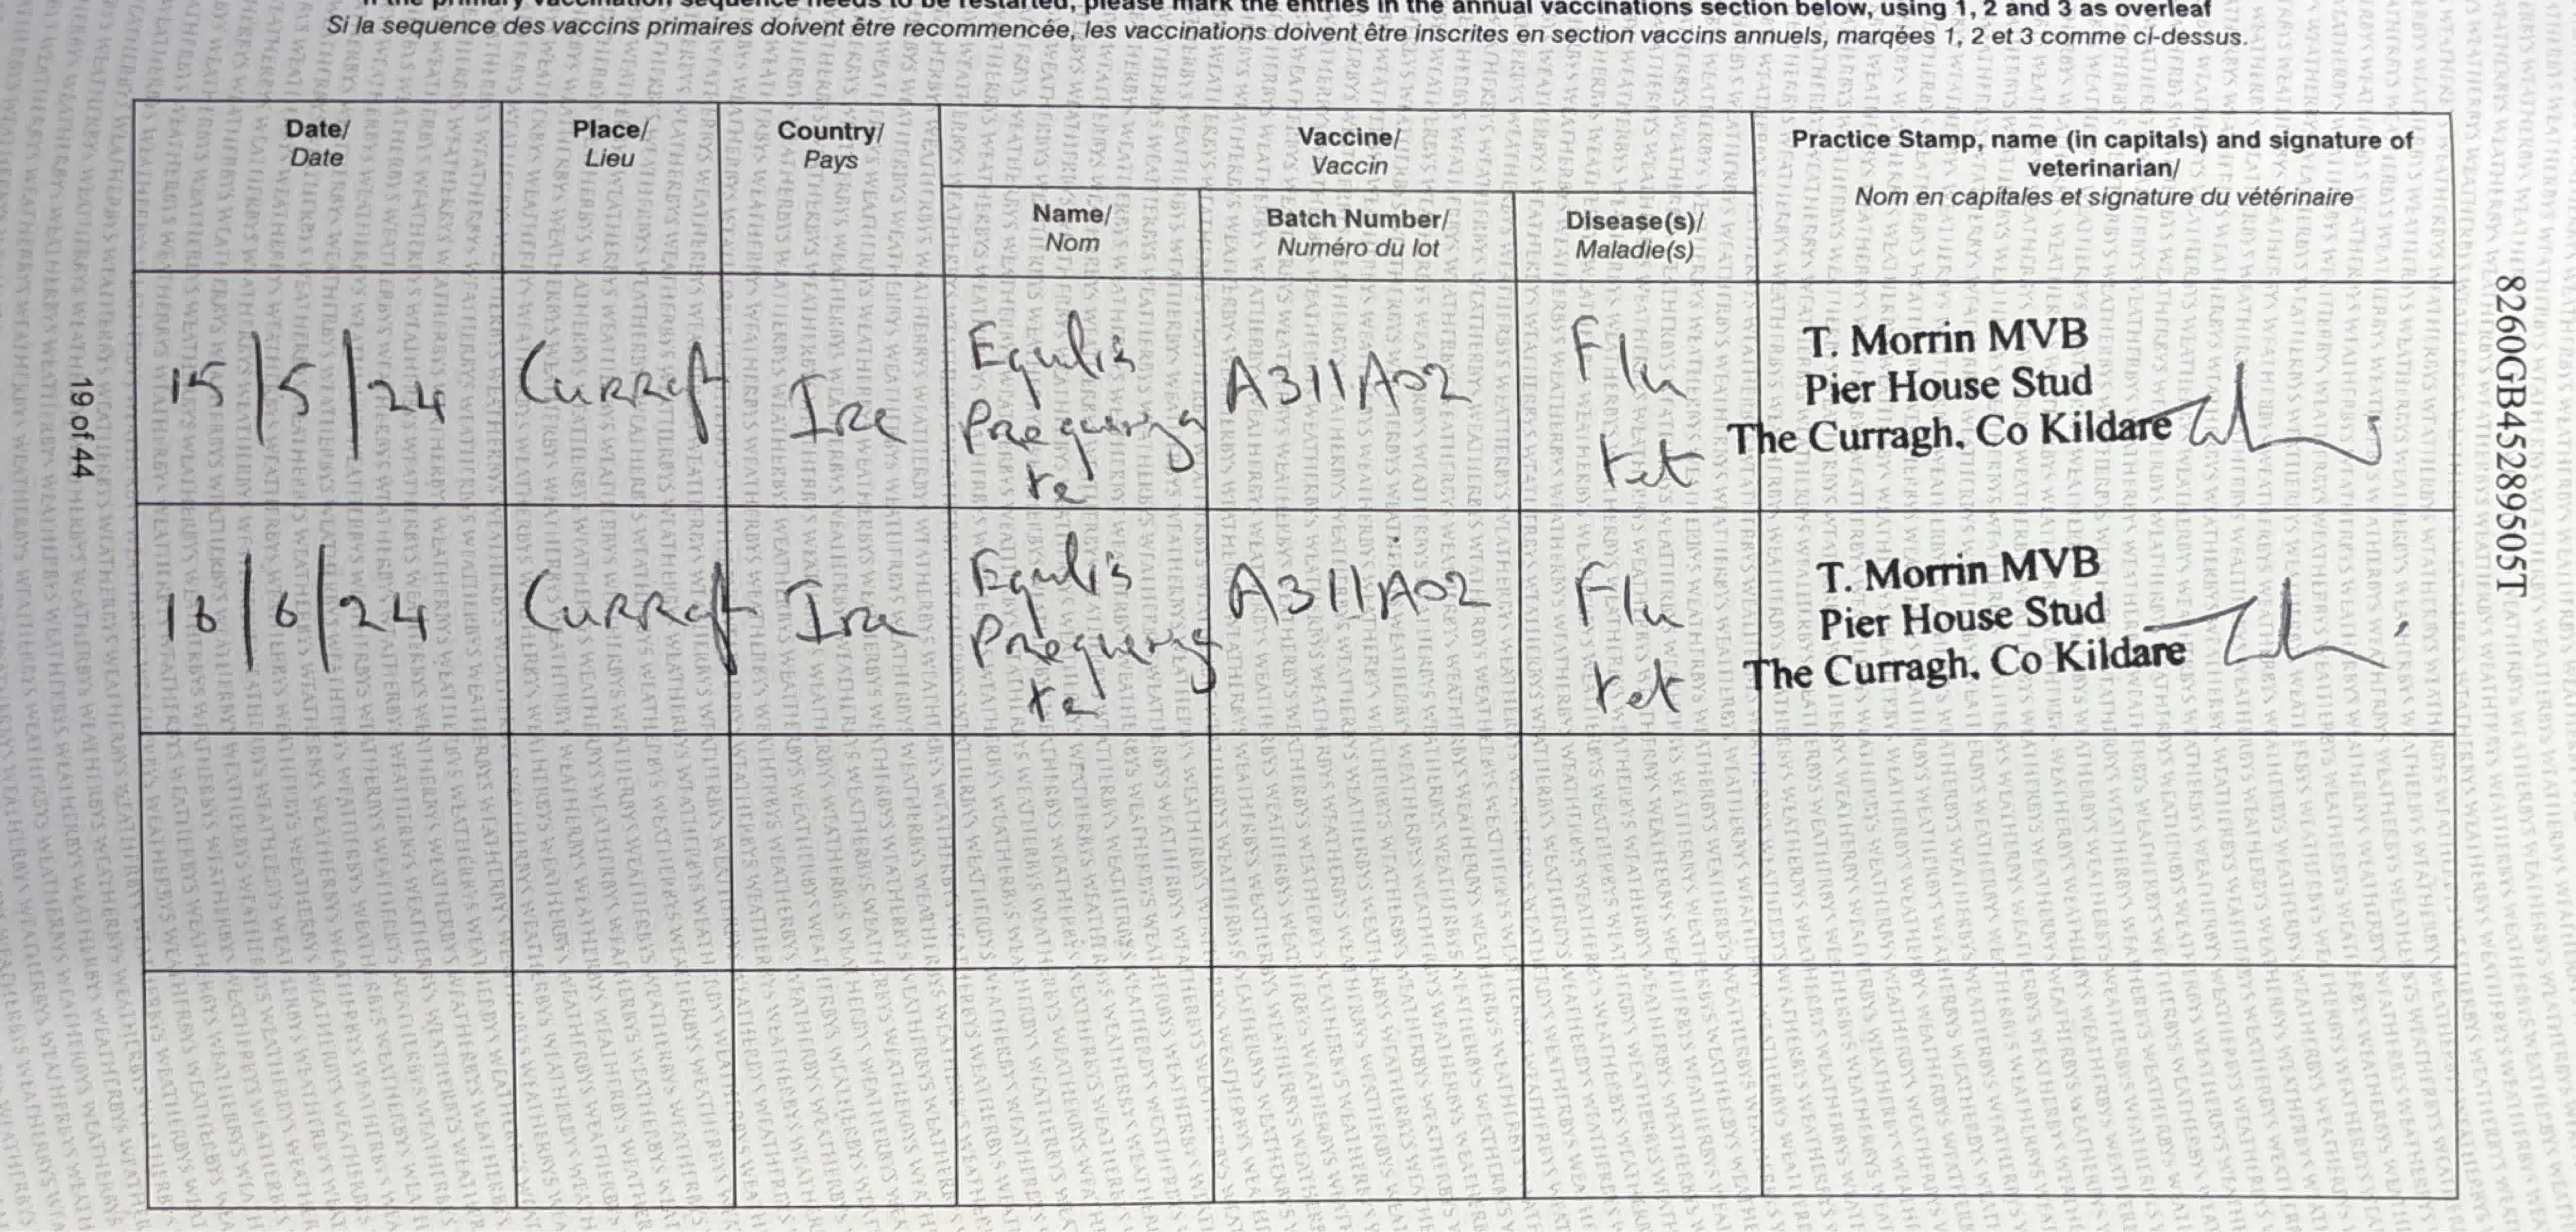 If the primary vaccination sequence needs to be restarted, please mark the entries in the annual vaccinations section below, using 1, 2 and 3 as overleaf
Si la sequence des vaccins primaires doivent être recommencée, les vaccinations doivent être inscrites en section vaccins annuels, marqées 1, 2 et 3 comme ci-dessus.
Date/
Date
Place/
Lieu
Country/
Pays
Vaccine/
Vaccin
Name/
Nom
Batch Number/
Numéro du lot
Disease(s)/
Maladie(s)
Practice Stamp, name (in capitals) and signature of
veterinarian/
Nom en capitales et signature du vétérinaire
15/5/24
Ire
Equilis
Prequenza
te
A311A02
Flu
tet
T. Morrin MVB
Pier House Stud
The Curragh, Co Kildare
16/6/24
Ire
Equilis
Prequenza
te
A311A02
Flu
tet
T. Morrin MVB
Pier House Stud
The Curragh, Co Kildare
19 of 44
8260GB45289505T